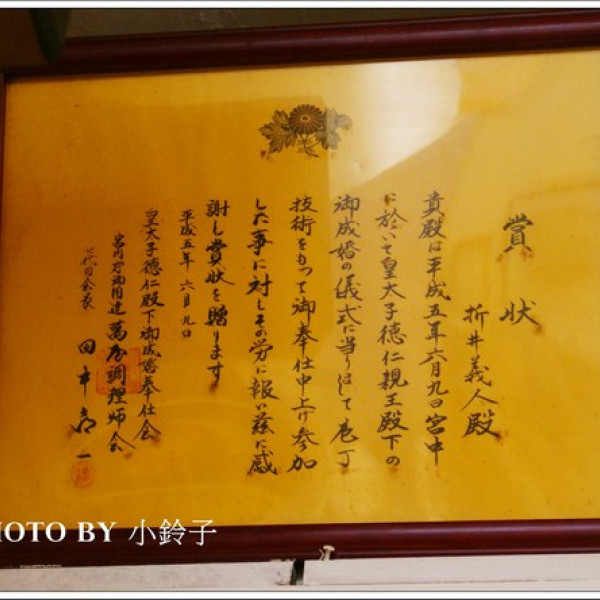 賞状
折井義人殿
貴殿は平成五年六月九日宮中
に於いて皇太子徳仁親王殿下の
御成婚の儀式に当りまして庖丁
技術をもって御奉仕申上げ参加
した事に対しその労に報い茲に感
謝し賞状を贈ります
平成五年六月九日
皇太子徳仁殿下御成婚奉仕会
宮内庁御用達萬屋調理師会
七代目会長 田中
HOTO BY 小鈴子